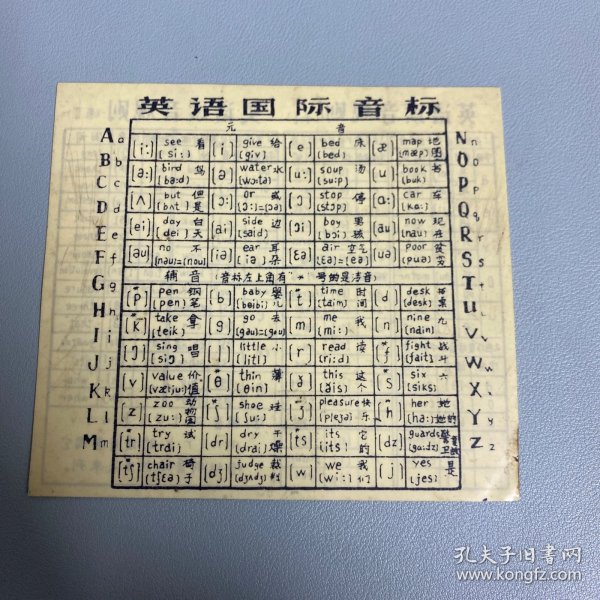 英语国际音标
元音
[i:] see 看 [si:] [i] give 给 [giv] [e] bed 床 [bed] [æ] map 地图 [mæp]
[ə:] bird 鸟 [bə:d] [ə] water 水 [wɔ:tə] [u:] soup 汤 [su:p] [u] book 书 [buk]
[ʌ] but 但是 [bʌt] [ɔ:] or 或 [ɔ:]=[ɔə] [ɔ] stop 停 [stɔp] [ɑ:] car 车 [kɑ:]
[ei] day 白天 [dei] [ai] side 边 [said] [ɔi] boy 男孩 [bɔi] [au] now 现在 [nau]
[əu] no 不 [nəu]=[nou] [iə] ear 耳朵 [iə] [ɛə] air 空气 [ɛə]=[eə] [uə] poor 贫穷 [puə]
辅音 (音标左上角有"*"号的是清音)
[*p] pen 钢笔 [pen] [b] baby 婴儿 [beibi] [*t] time 时间 [taim] [d] desk 书桌 [desk]
[*k] take 拿 [teik] [g] go 去 [gəu]=[gou] [m] me 我 [mi:] [n] nine 九 [nain]
[ŋ] sing 唱 [siŋ] [l] little 小 [litl] [r] read 读 [ri:d] [*f] fight 战斗 [fait]
[v] value 价值 [vælju:] [*θ] thin 薄 [θin] [ð] this 这个 [ðis] [*s] six 六 [siks]
[z] zoo 动物园 [zu:] [*ʃ] shoe 鞋 [ʃu:] [ʒ] pleasure 快乐 [pleʒə] [*h] her 她的 [hə:]
[*tr] try 试 [trai] [dr] dry 干燥 [drai] [*ts] its 它的 [its] [dz] guards 警卫 [gɑ:dz]
[*tʃ] chair 椅子 [tʃɛə] [dʒ] judge 裁判 [dʒʌdʒ] [w] we 我们 [wi:] [j] yes 是 [jes]
A a
B b
C c
D d
E e
F f
G g
H h
I i
J j
K k
L l
M m
N n
O o
P p
Q q
R r
S s
T t
U u
V v
W w
X x
Y y
Z z
孔夫子旧书网
www.kongfz.com